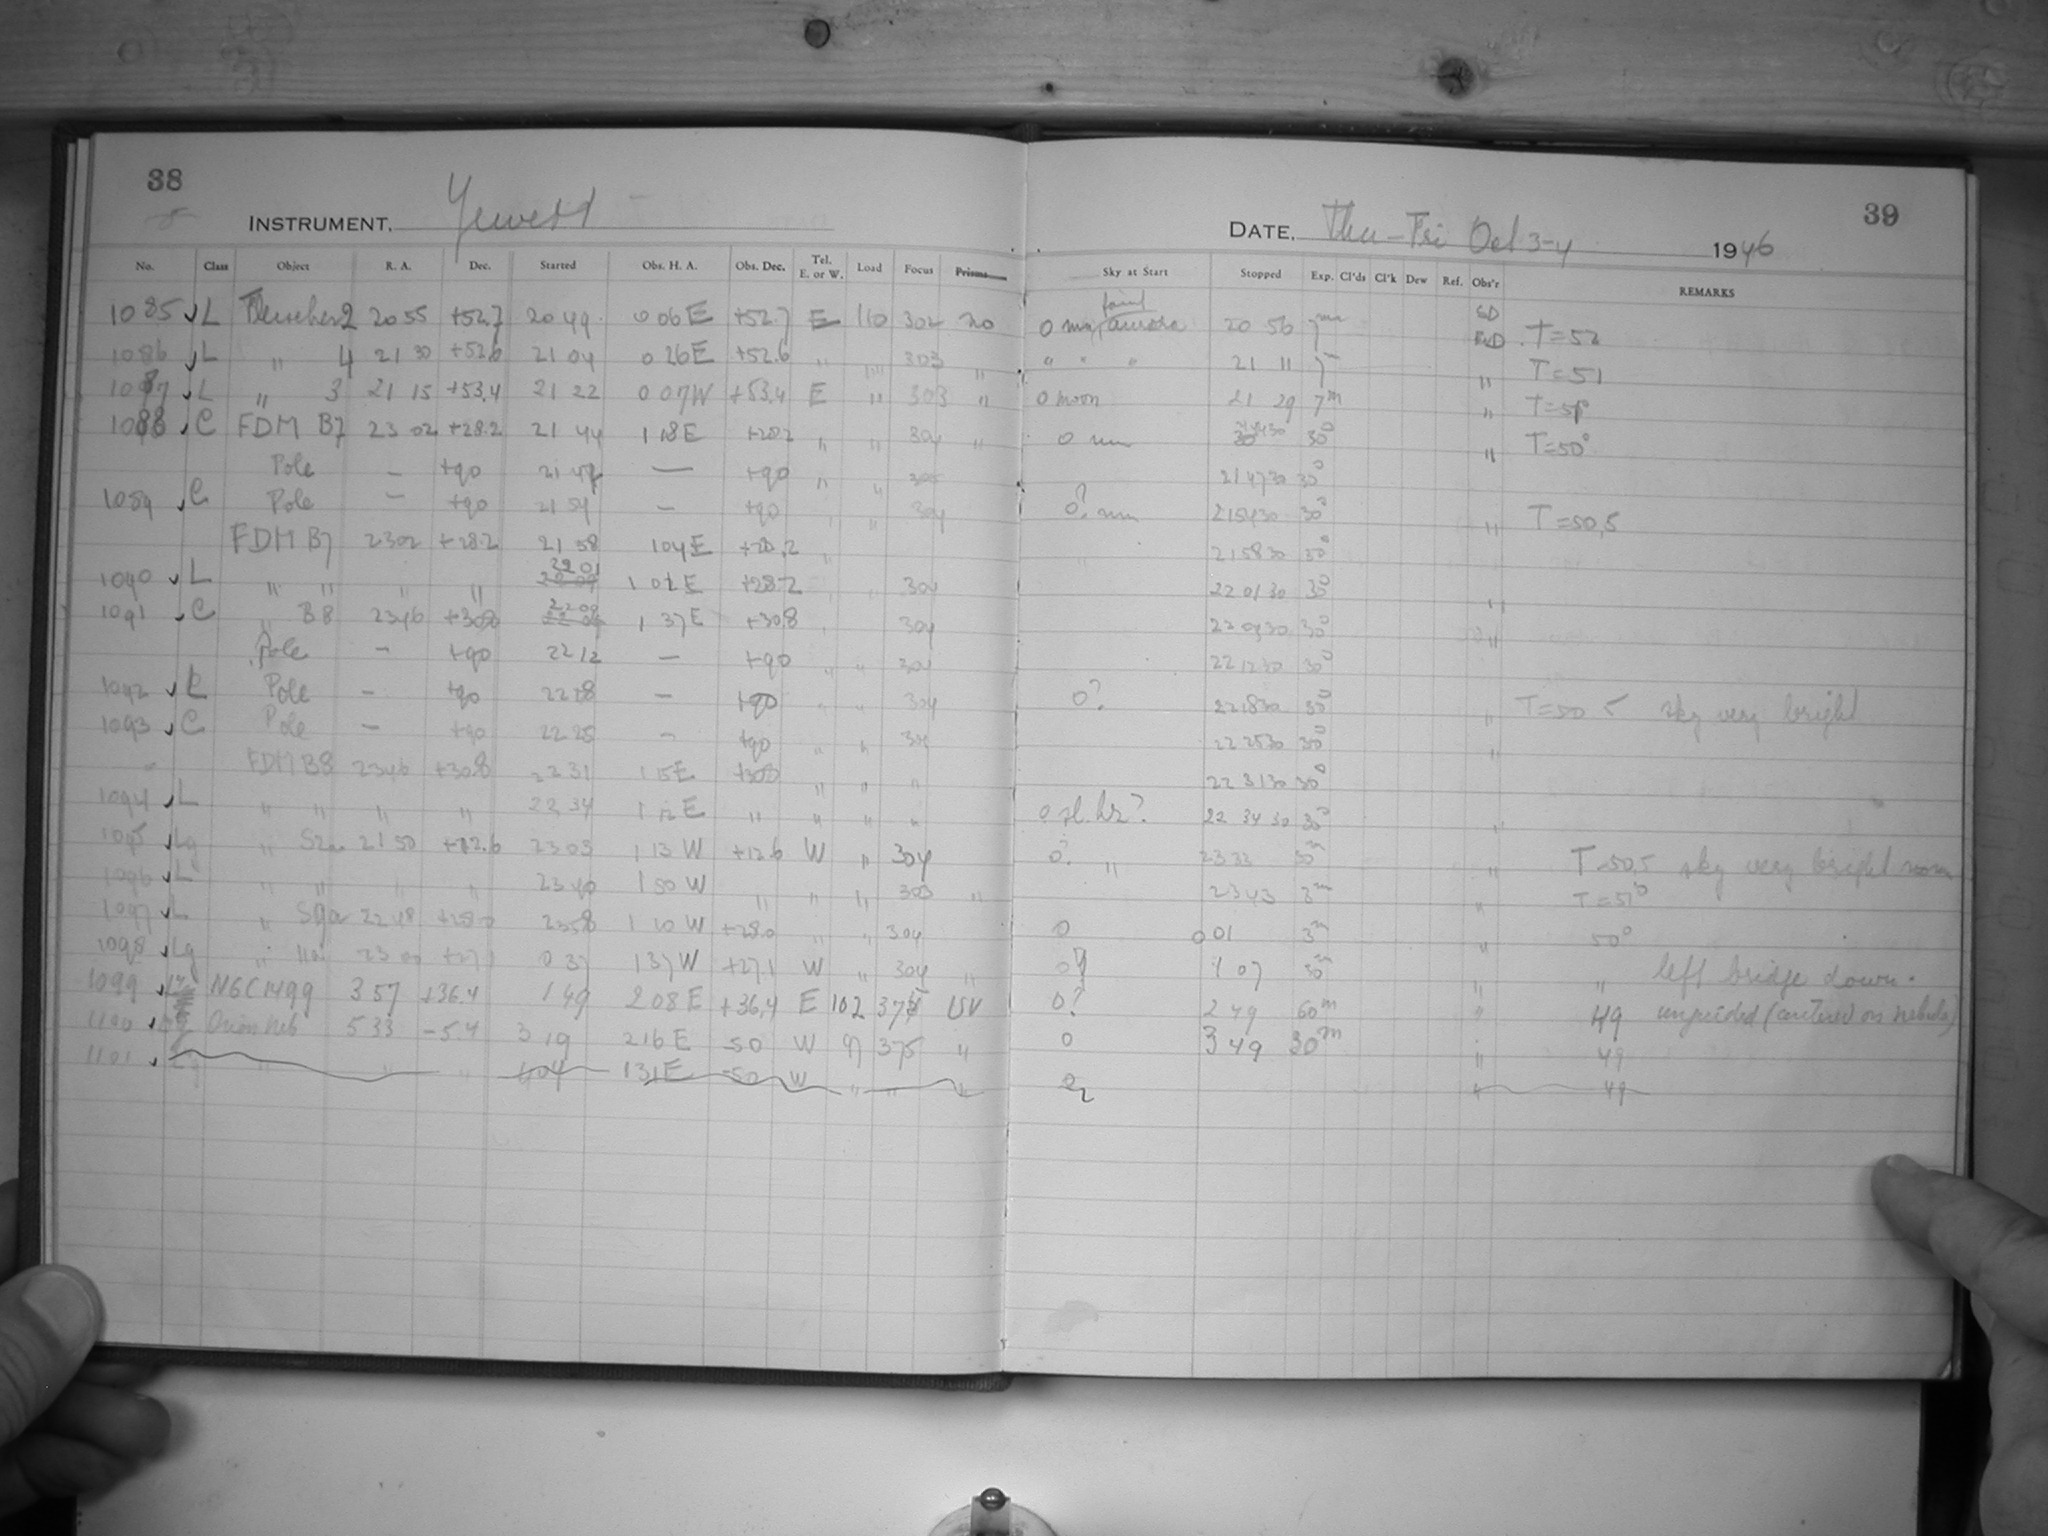 38
INSTRUMENT.
No. Class Object R. A. Dec. Started Obs. H. A. Obs. Dec. Tel. E. or W. Load Focus Prisms
1085 L 2 20 55 +52.7 20 49 0 06 E +52.7 E 110 302 no
1086 L " 4 21 30 +52.6 21 04 0 26 E +52.6 " " 303 "
1087 L " 3 21 15 +53.4 21 22 0 07 W +53.4 E " 303 "
1088 C FDM B7 23 02 +28.2 21 44 1 18 E +28.2 " " 304 "
Pole - +90 21 47 - +90 " "
1089 C Pole - +90 21 54 - +90 " " 304
FDM B7 23 02 +28.2 21 58 1 04 E +28.2 "
1090 L " " " " 22 01 1 01 E +28.2 " " 304
1091 C " B8 23 46 +30.8 22 09 1 37 E +30.8 " 304
Pole - +90 22 12 - +90 " " 304
1092 L Pole - +90 22 18 - +90 " " 304
1093 C Pole - +90 22 25 - +90 " " 304
FDM B8 23 46 +30.8 22 31 1 15 E +30.8 " " "
1094 L " " " " 22 34 1 12 E " " " "
1095 Lg " 21 50 +12.6 23 03 1 13 W +12.6 W " 304
1096 L " " " " 23 40 1 50 W " " " 303 "
1097 L " 22 48 +28.0 23 58 1 10 W +28.0 " " 304
1098 Lg " 23 00 +27.1 0 37 1 37 W +27.1 W " 304 "
1099 NGC 1499 3 57 +36.4 1 49 2 08 E +36.4 E 102 375 UV
1100 Orion neb 5 33 -5.4 3 19 2 16 E -50 W 97 375 "
1101 Lg " " " 4 04 1 31 E -50 W " " "
39
DATE. Thu-Fri Oct 3-4 1946
Sky at Start Stopped Exp. Cl'ds Cl'k Dew Ref. Obs'r REMARKS
0 faint aurora 20 56 7m T=52
" " " 21 11 7m " T=51
0 moon 21 29 7m " T=51°
0 21 44 30 30s " T=50°
21 47 30 30s
0? 21 54 30 30s " T=50.5
21 58 30 30s
22 01 30 30s "
22 09 30 30s "
22 12 30 30s
0? 22 18 30 30s " T=50.5 sky very bright
22 25 30 30s "
22 31 30 30s
0 sl. hz? 22 34 30 30s "
0? " 23 33 30m " T=50.5 sky very bright moon
23 43 3m " T=51°
0 0 01 3m " 50°
1 07 30m " " left bridge down.
0? 2 49 60m " 49 unguided (centered on nebula)
0 3 49 30m " 49
" 49